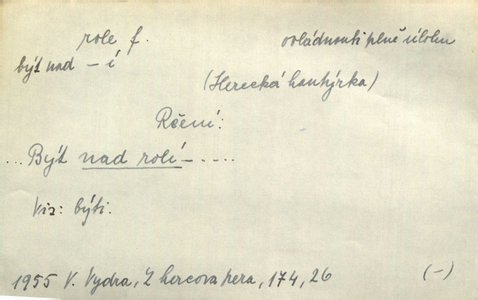 role f. ovládnouti plně úlohu
být nad – í
(Herecká hantýrka)
Rčení:
... Být nad rolí – .....
Viz: býti.
1955 V. Vydra, Z hercova pera, 174, 26 (–)